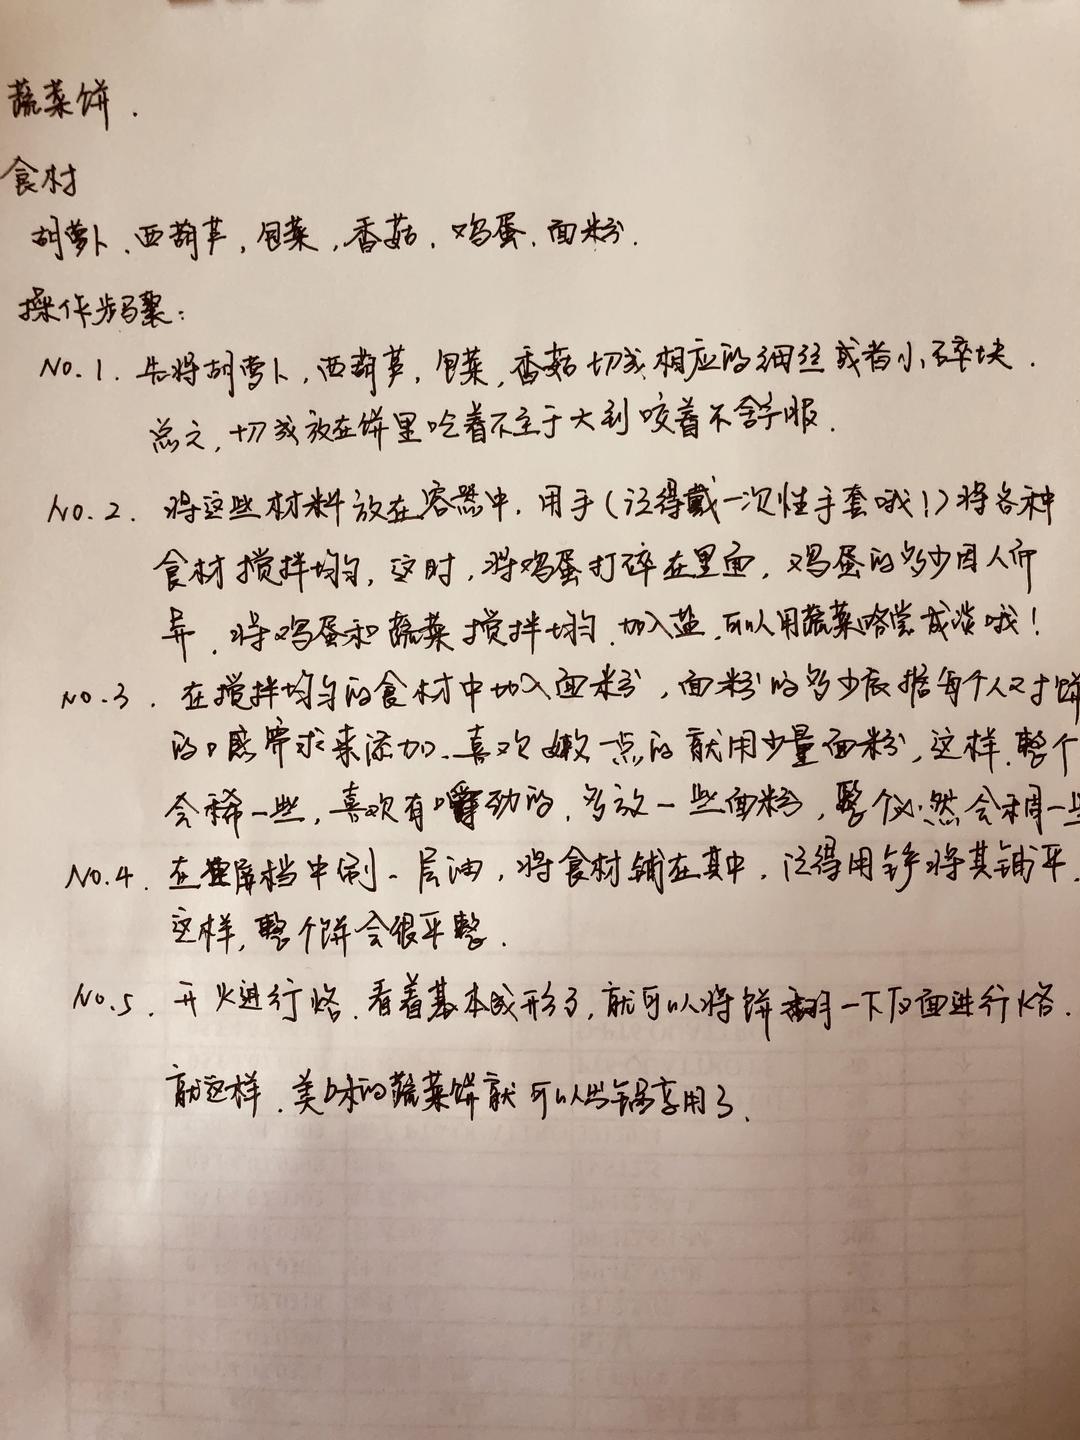 蔬菜饼.
食材
胡萝卜、西葫芦,包菜,香菇、鸡蛋、面粉.
操作步骤:
No.1. 先将胡萝卜,西葫芦,包菜,香菇切成相应的细丝或者小碎块.
总之,切成放在饼里吃着不至于大到咬着不舒服.
No.2. 将这些材料放在容器中,用手(记得戴一次性手套哦!)将各种
食材搅拌均匀,这时,将鸡蛋打碎在里面,鸡蛋的多少因人而
异,将鸡蛋和蔬菜搅拌均匀.加入盐,可以用蔬菜略尝咸淡哦!
No.3. 在搅拌均匀的食材中加入面粉,面粉的多少依据每个人对饼
的口感需求来添加、喜欢嫩一点的就用少量面粉,这样,整个
会稀一些,喜欢有嚼劲的,多放一些面粉,整个必然会稠一些
No.4. 在档中刷一层油,将食材铺在其中,记得用铲将其铺平,
这样,整个饼会很平整.
No.5. 开火进行烙.看着基本成形了,就可以将饼翻一下反面进行烙.
就这样,美味的蔬菜饼就可以出锅享用了.